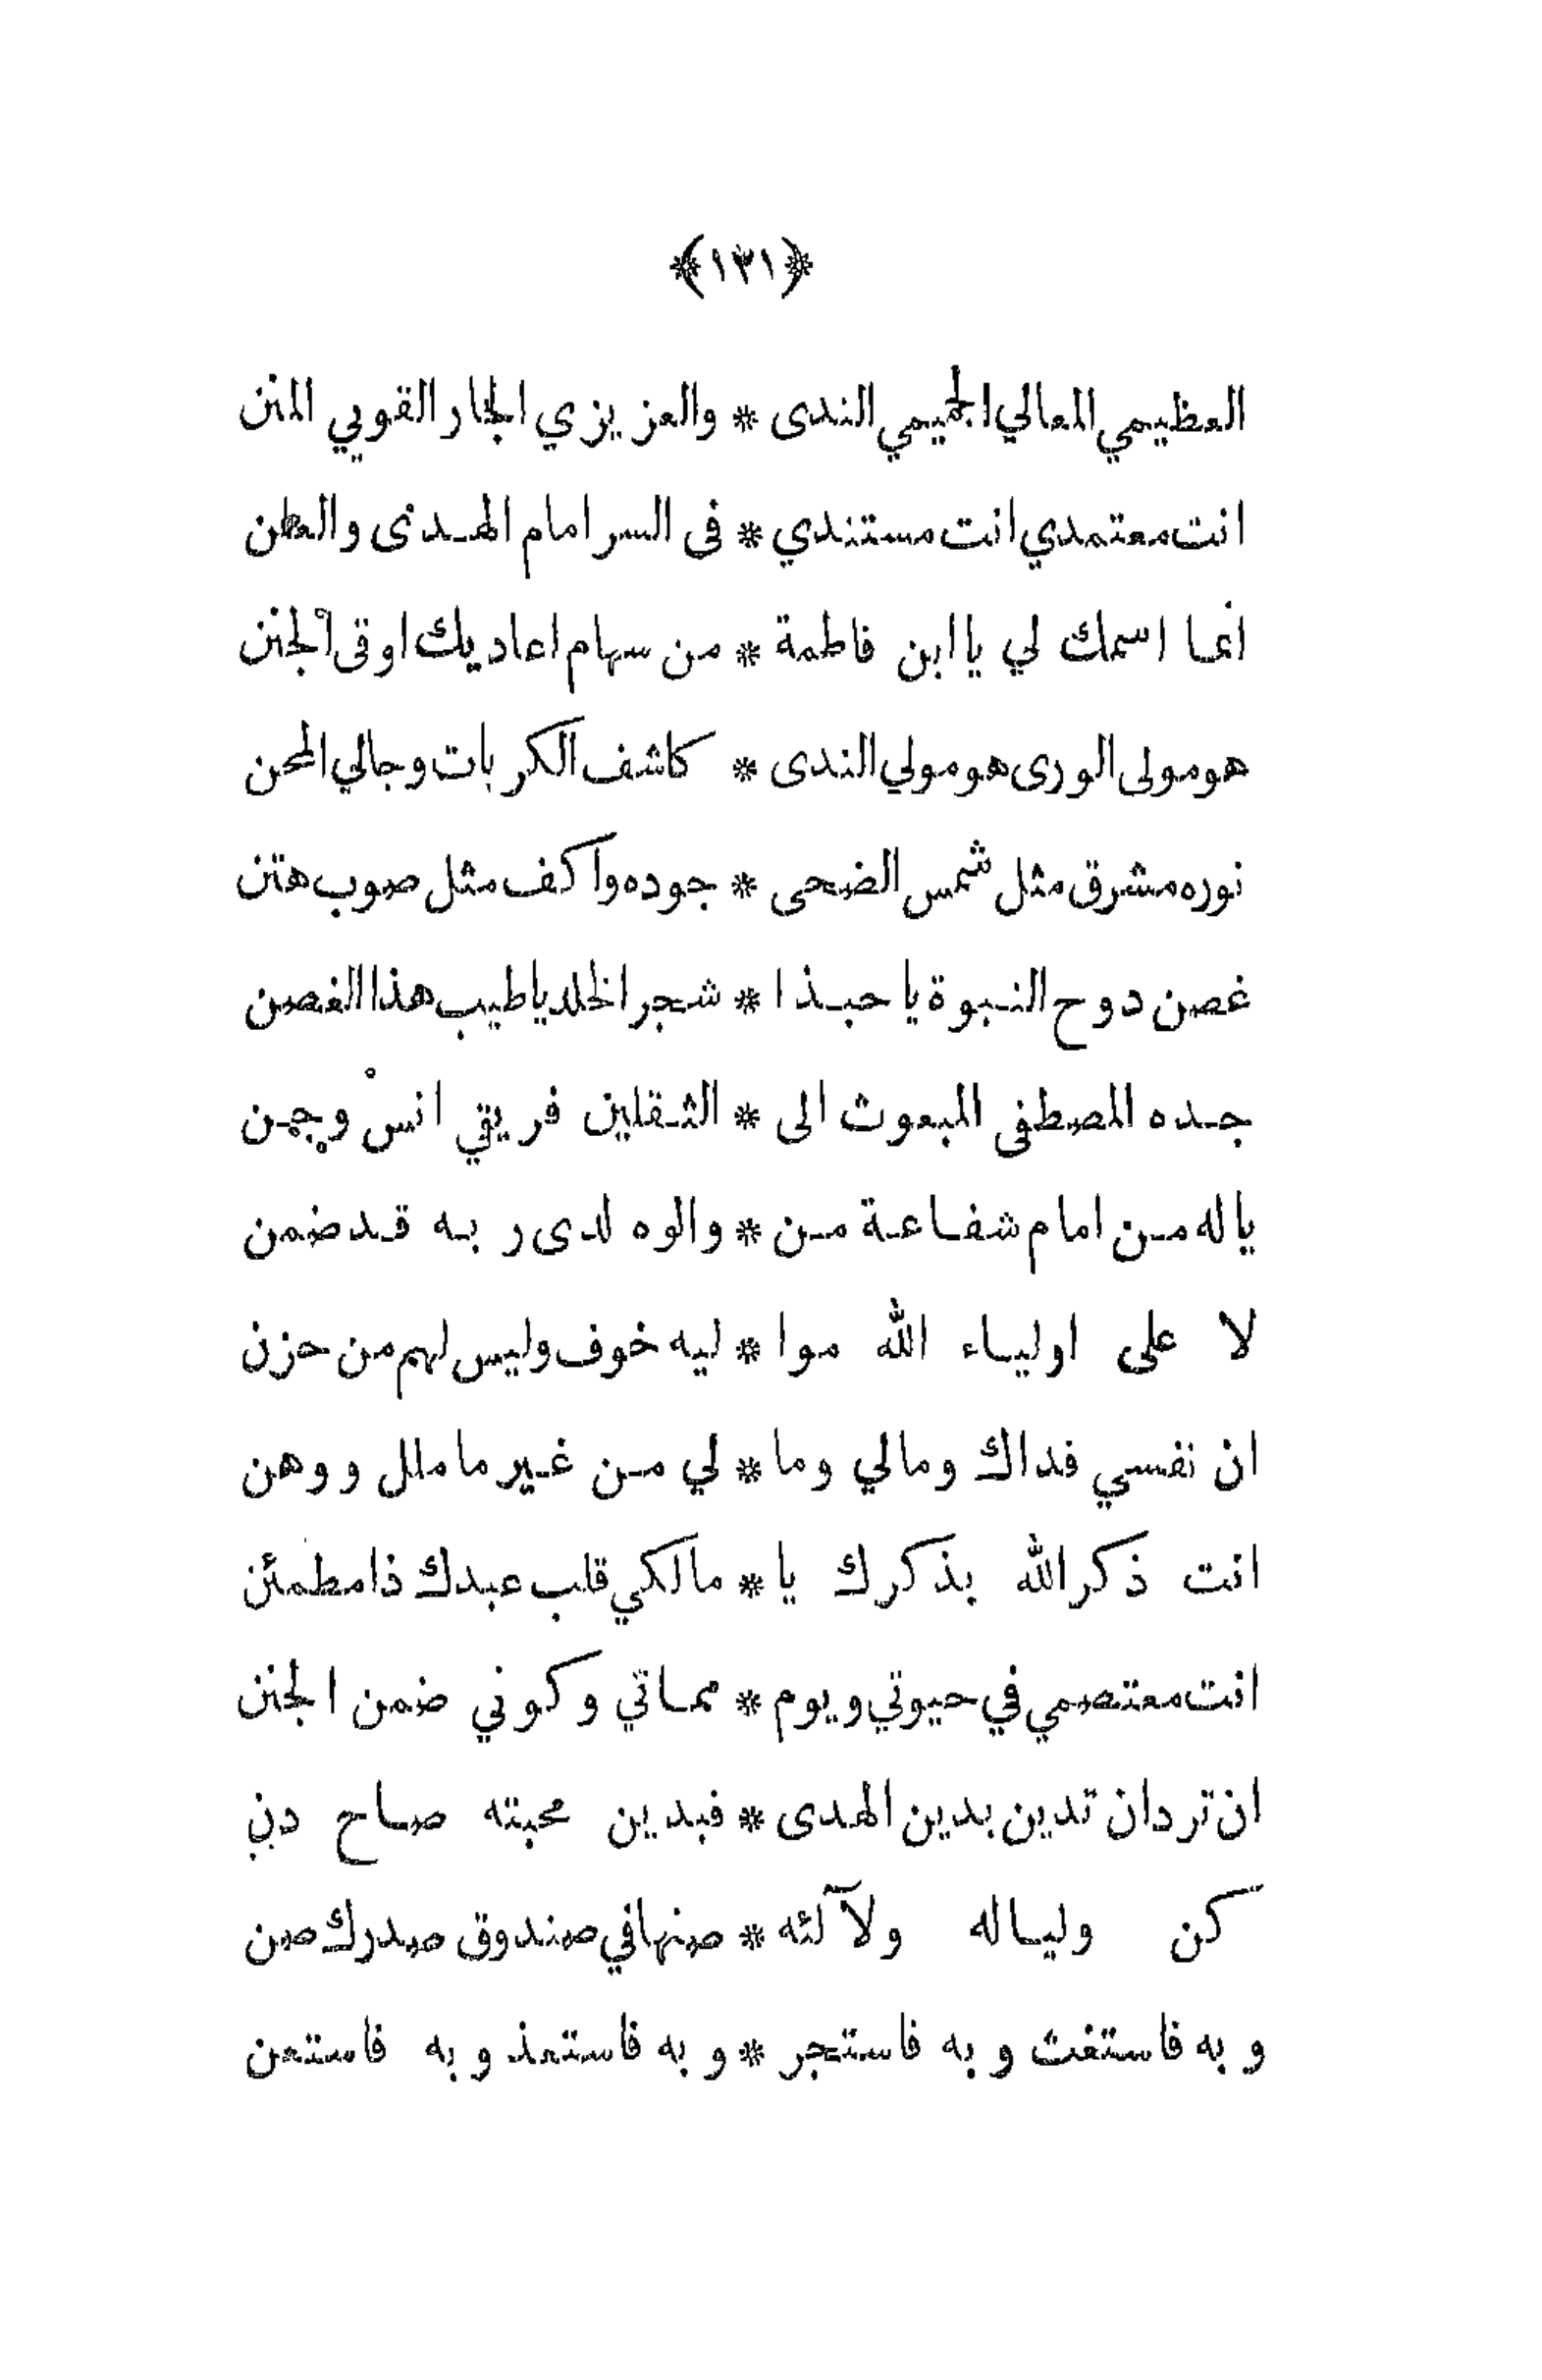 ﴿١٣١﴾
العظيمي المعالي الجميمي الندى * والعزيزي الجار القويي المنن
انت معتمدي انت مستندي * فى السر امام الهدى والعلن
انما اسمك لي يا ابن فاطمة * من سهام اعاديك اوقى الجنن
هو مولى الورى هو مولي الندى * كاشف الكربات وجالي المحن
نوره مشرق مثل شمس الضحى * جوده واكف مثل صوب هتن
غصن دوح النبوة يا حبذا * شجر الخلد يا طيب هذا الغصن
جده المصطفى المبعوث الى * الثقلين فريقي انسْ وجن
يا له من امام شفاعة من * والوه لدى ربه قد ضمن
لا على اولياء الله موا * ليه خوف وليس لهم من حزن
ان نفسي فداك ومالي وما * لي من غير ما ملل ووهن
انت ذكر الله بذكرك يا * مالكي قلب عبدك ذا مطمئن
انت معتصمي في حيوتي ويوم * مماتي وكوني ضمن الجنن
ان ترد ان تدين بدين الهدى * فبدين محبته صاح دنِ
كن وليا له ولآلئه * صنها في صندوق صدرك صن
وبه فاستغث وبه فاستجر * وبه فاستعذ وبه فاستعن